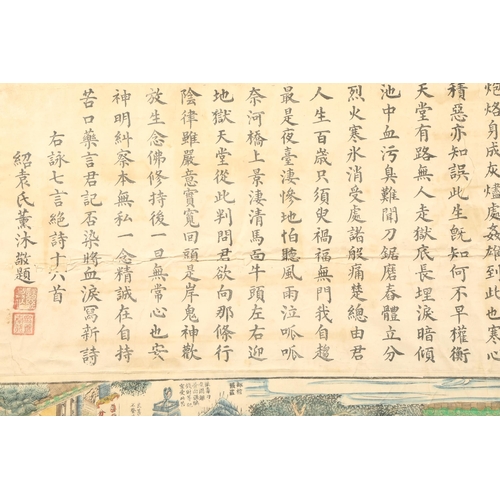 炮烙身成灰燼處奸雄到此也寒心
積惡亦知誤此生既知何不早權衡
天堂有路無人走獄底長埋淚暗傾
池中血污臭難聞刀鋸磨舂體立分
烈火寒冰消受處諸般痛楚總由君
人生百歲只須臾禍福無門我自趨
最是夜臺淒慘地怕聽風雨泣呱呱
奈河橋上景淒清馬面牛頭左右迎
地獄天堂從此判問君欲向那條行
陰律雖嚴意實寬回頭是岸鬼神歡
放生念佛修持後一旦無常心也安
神明糾察本無私一念精誠在自持
苦口藥言君記否染將血淚寫新詩
右詠七言絕詩十六首
紹袁氏薰沐敬題